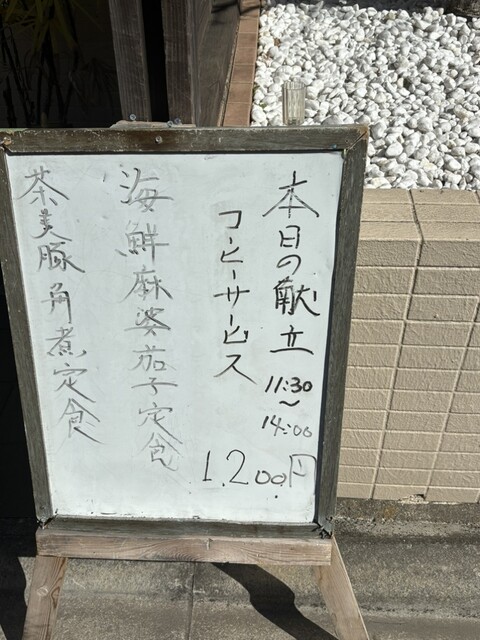 本日の献立
11:30
~
14:00
コーヒーサービス
1,200円
海鮮麻婆茄子定食
茶美豚角煮定食